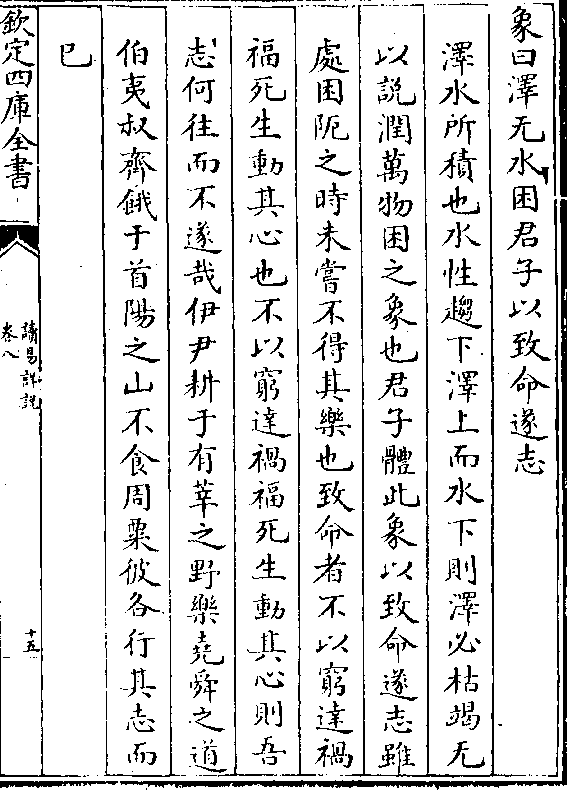 象曰澤无水困君子以致命遂志
澤水所積也水性趨下澤上而水下則澤必枯竭无
以説潤萬物困之象也君子體此象以致命遂志雖
處困阨之時未嘗不得其樂也致命者不以窮達禍
福死生動其心也不以窮達禍福死生動其心則吾
志何往而不遂哉伊尹耕于有莘之野樂堯舜之道
伯夷叔齊餓于首陽之山不食周粟彼各行其志而
已
欽定四庫全書
讀易詳説
卷八
十五